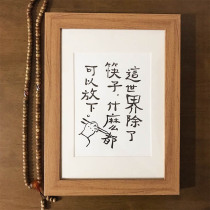 這世界除了
筷子，什麼都
可以放下。